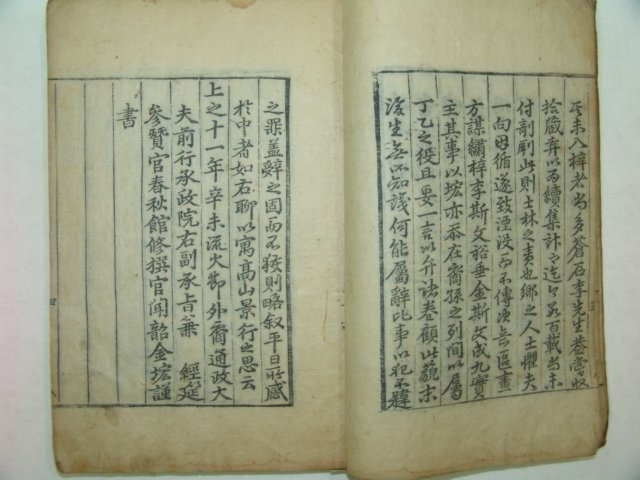 其未入梓者尚多蒼石李先生盖嘗收
拾藏弆以爲續集計而迄今數百載尚未
付剞劂此則士林之責也鄉之人士懼夫
一向因循遂致湮沒而不傳次區畫
方謀繡梓李斯文裕垂金斯文成九實
主其事以㙆亦忝在裔孫之列間以屬
丁乙之役且要一言以弁諸卷顧此藐末
後生無所知識何能屬辭比事以犯不韙
之罪盖辭之固而不獲則略叙平日所感
於中者如右聊以寓高山景行之思云
上之十一年辛未流火節外裔通政大
夫前行承政院右副承旨兼 經筵
參贊官春秋館修撰官聞韶金㙆謹
書